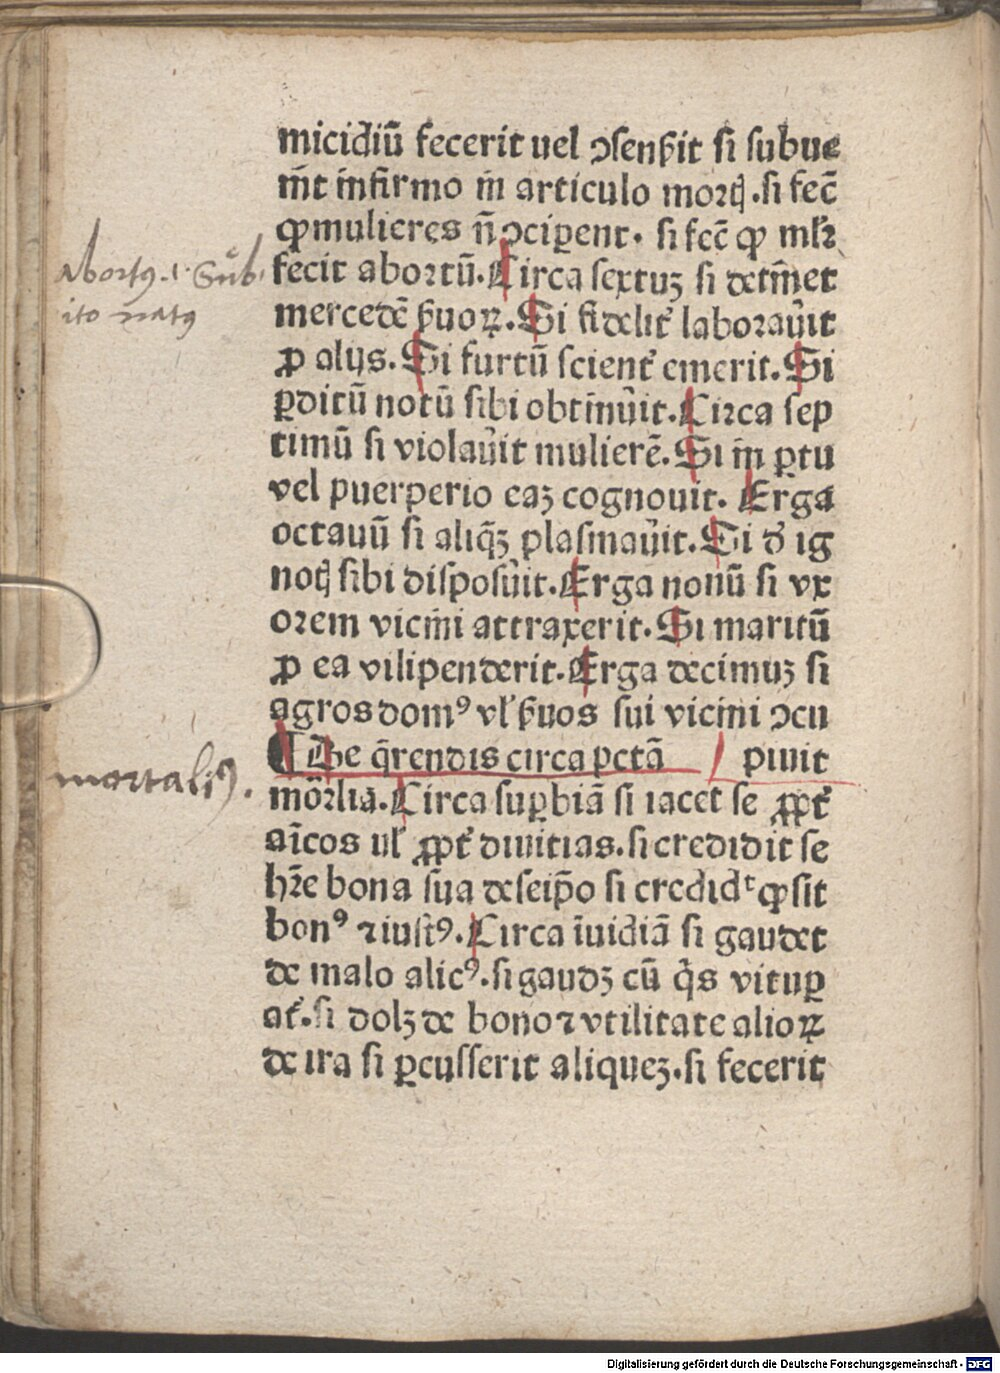 micidiū fecerit uel ↄſenẜit ſi ſubue
m̄t infirmo in articulo mortꝭ.ſi fec̄
ꝙ mulieres n̄ ↄcipe̱rent. ſi fec̄ ꝙ ml̄r
fecit abortū. Circa ſextuꝫ ſi detīnet
mercedē ẜuoꝝ. Si fidelit̓ laborau̓it
ꝓ alijs. Si furtū ſcient̓ emerit. Si
ꝑditū notū ſibi obtinu̓it. Circa ſep
timū ſi violau̓it mulierē. Si in ꝑtu
vel puerperio eaꝫ cognouit. Erga
octauū ſi aliq̄ꝫ plaſmau̓it. Si d̓ ig
notꝭ ſibi diſpoſu̓it. Erga nonū ſi vx
orem vicini attraxerit. Si maritū
ꝓ ea vilipenderit. Erga decimuꝫ ſi
agros domꝰ vl̓ ẜuos ſui vicini ↄcu
¶ De q̄rendis circa pctā / piuit
mōrlia. Circa ſuꝑbiā ſi iacet ſe ꝓpt̓
aīcos ul̓ ꝓpt̓ diuitias. ſi credidit ſe
hr̄e bona ſua de ſeip̄o ſi credidᵗ ꝙ ſit
bonꝰ ⁊ iuſtꝰ. Circa īuidiā ſi gaudet
de malo alicꝰ. ſi gaudꝫ cū q̄s vituꝑ
at̓. ſi dolꝫ de bono ⁊ vtilitate alioꝝ
de ira ſi ꝑcuſſerit aliqueꝫ. ſi fecerit
Abortꝰ .i. Sub
ito natꝰ
mortaliꝰ.
Digitalisierung gefördert durch die Deutsche Forschungsgemeinschaft - DFG